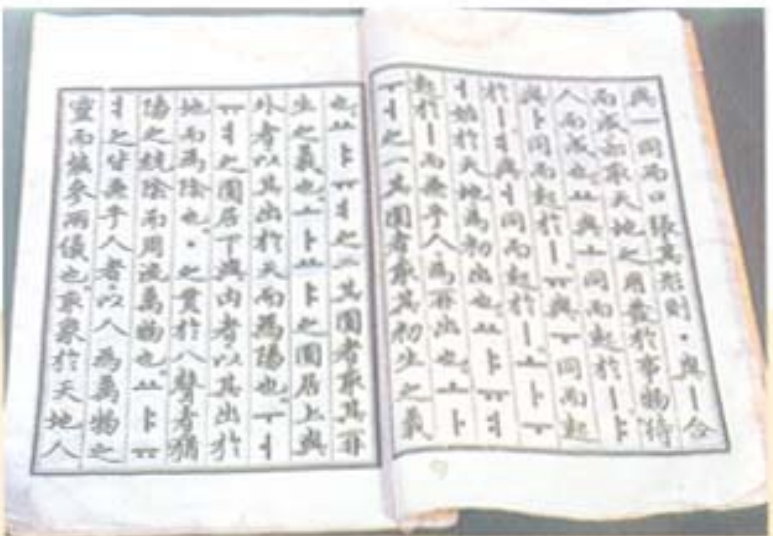 與ㅡ同而口張其形則ㆍ與ㅣ合
而成亦取天地之用發於事物待
人而成也ㅛ與ㅗ同而起於ㅣㅑ
與ㅏ同而起於ㅣㅠ與ㅜ同而起
於ㅣㅕ與ㅓ同而起於ㅣㅗㅏㅜ
ㅓ始於天地為初出也ㅛㅑㅠㅕ
起於ㅣ而兼乎人為再出也ㅗㅏ
ㅜㅓ之一其圓者取其初生之義
也ㅛㅑㅠㅕ之二其圓者取其再
生之義也ㅗㅏㅛㅑ之圓居上與
外者以其出於天而為陽也ㅜㅓ
ㅠㅕ之圓居下與內者以其出於
地而為陰也ㆍ之貫於八聲者猶
陽之統陰而周流萬物也ㅛㅑㅠ
ㅕ之皆兼乎人者以人為萬物之
靈而能參兩儀也取象於天地人